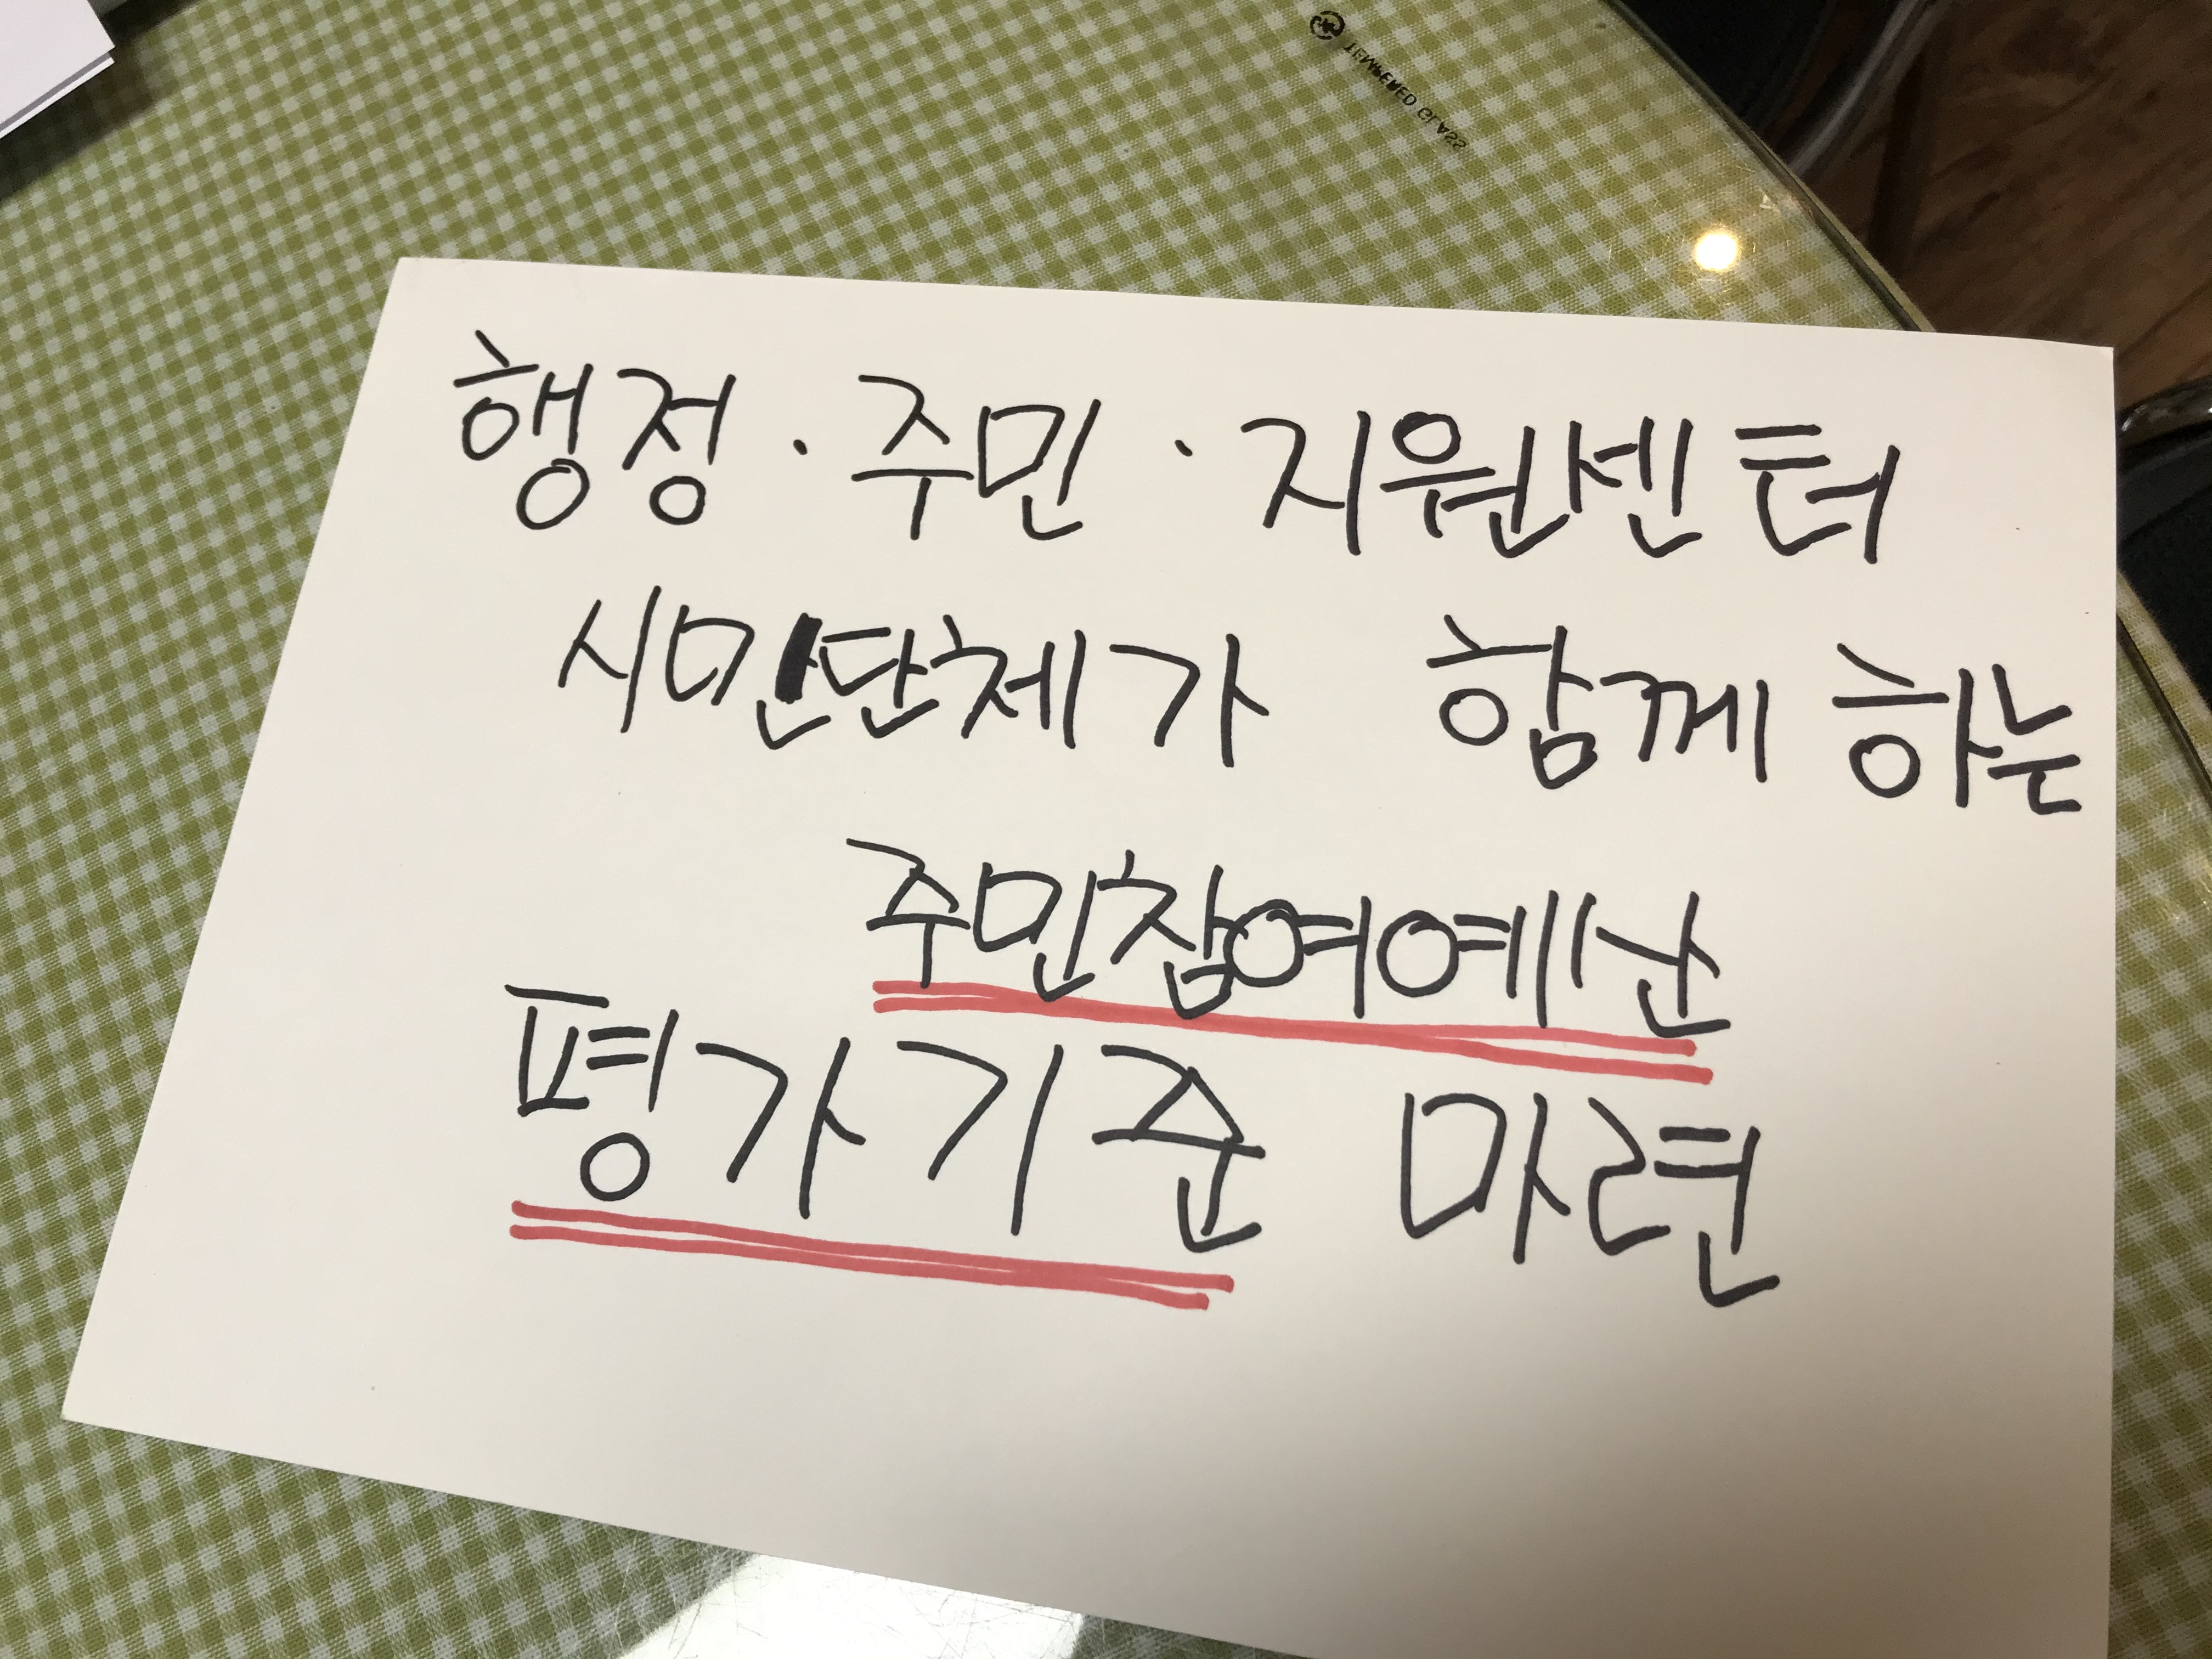 TEMPERED GLASS
행정 · 주민 · 지원센터
시민단체가 함께 하는
주민참여예산
평가기준 마련